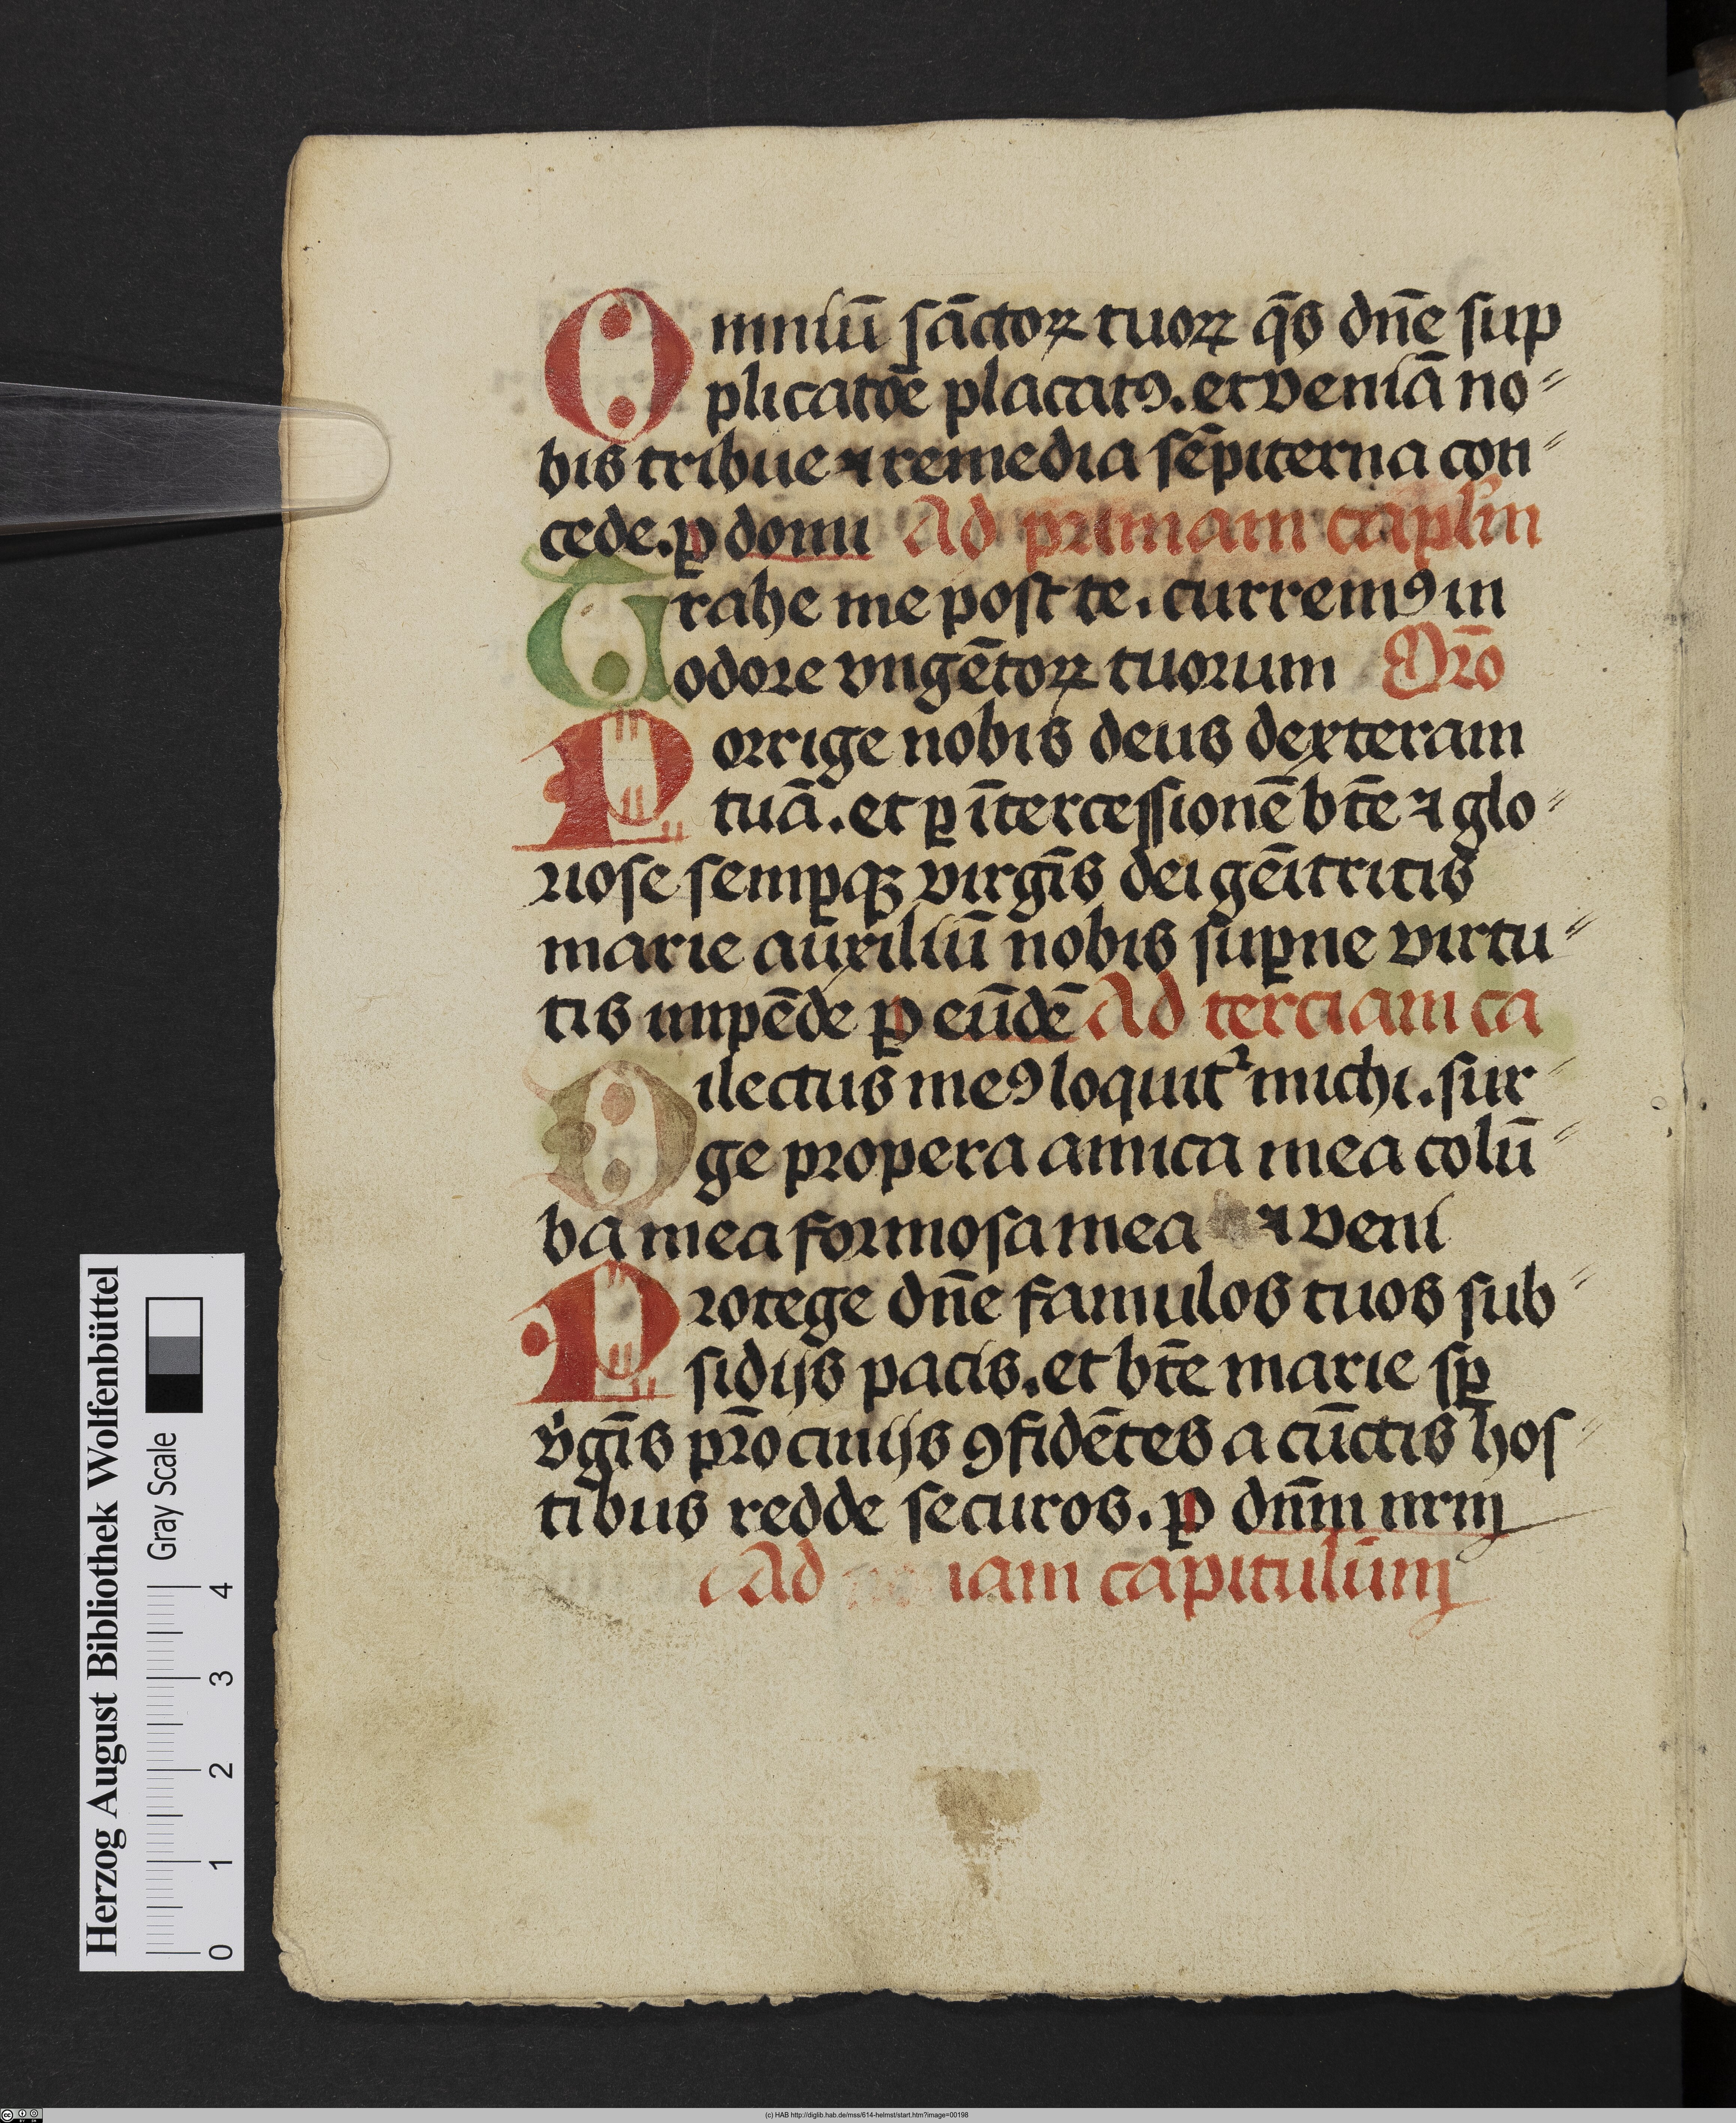 Omniū sāctoꝝ tuoꝝ q̄s dn̄e sup
plicatōe placatꝰ. et veniā no⸗
bis tribue ⁊ remedia sēpiterna con⸗
cede. ꝑ domi Ad primam cāplm
Trahe me post te. curremꝰ in
odore vngētoꝝ tuorum Orō
Porrige nobis deus dexteram
tuā. et ꝑ īntercessionē bt̄e ⁊ glo⸗
riose semꝑqꝫ virgīs dei gēitricis
marie auxiliū nobis suꝑne virtu⸗
tis impēde ꝑ eūdē Ad terciam ca
Dilectus meꝰ loquit᷑ michi. sur⸗
ge propera amica mea colū⸗
ba mea formosa mea ⁊ veni
Protege dn̄e famulos tuos sub⸗
sidijs pacis. et bt̄e marie sꝑ
v̓gīs pr̄ocinijs ꝯfidētes a cūctis hos⸗
tibus redde securos. ꝑ dn̄m nrm
Ad iam capitulūm
Herzog August Bibliothek Wolfenbüttel
Gray Scale
0 1 2 3 4
(c) HAB http://diglib.hab.de/mss/614-helmst/start.htm?image=00198